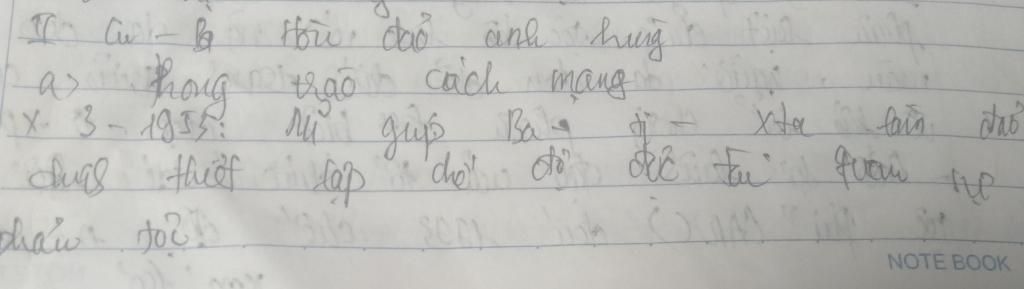 II Cu - Ba Hòn đảo anh hùng
a> Phong trào cách mạng
x 3 - 1955: Mĩ giúp Ba - ti - xta làm đảo
chính thiết lập chế độ độc tài quân sự
phản tọc.
NOTE BOOK